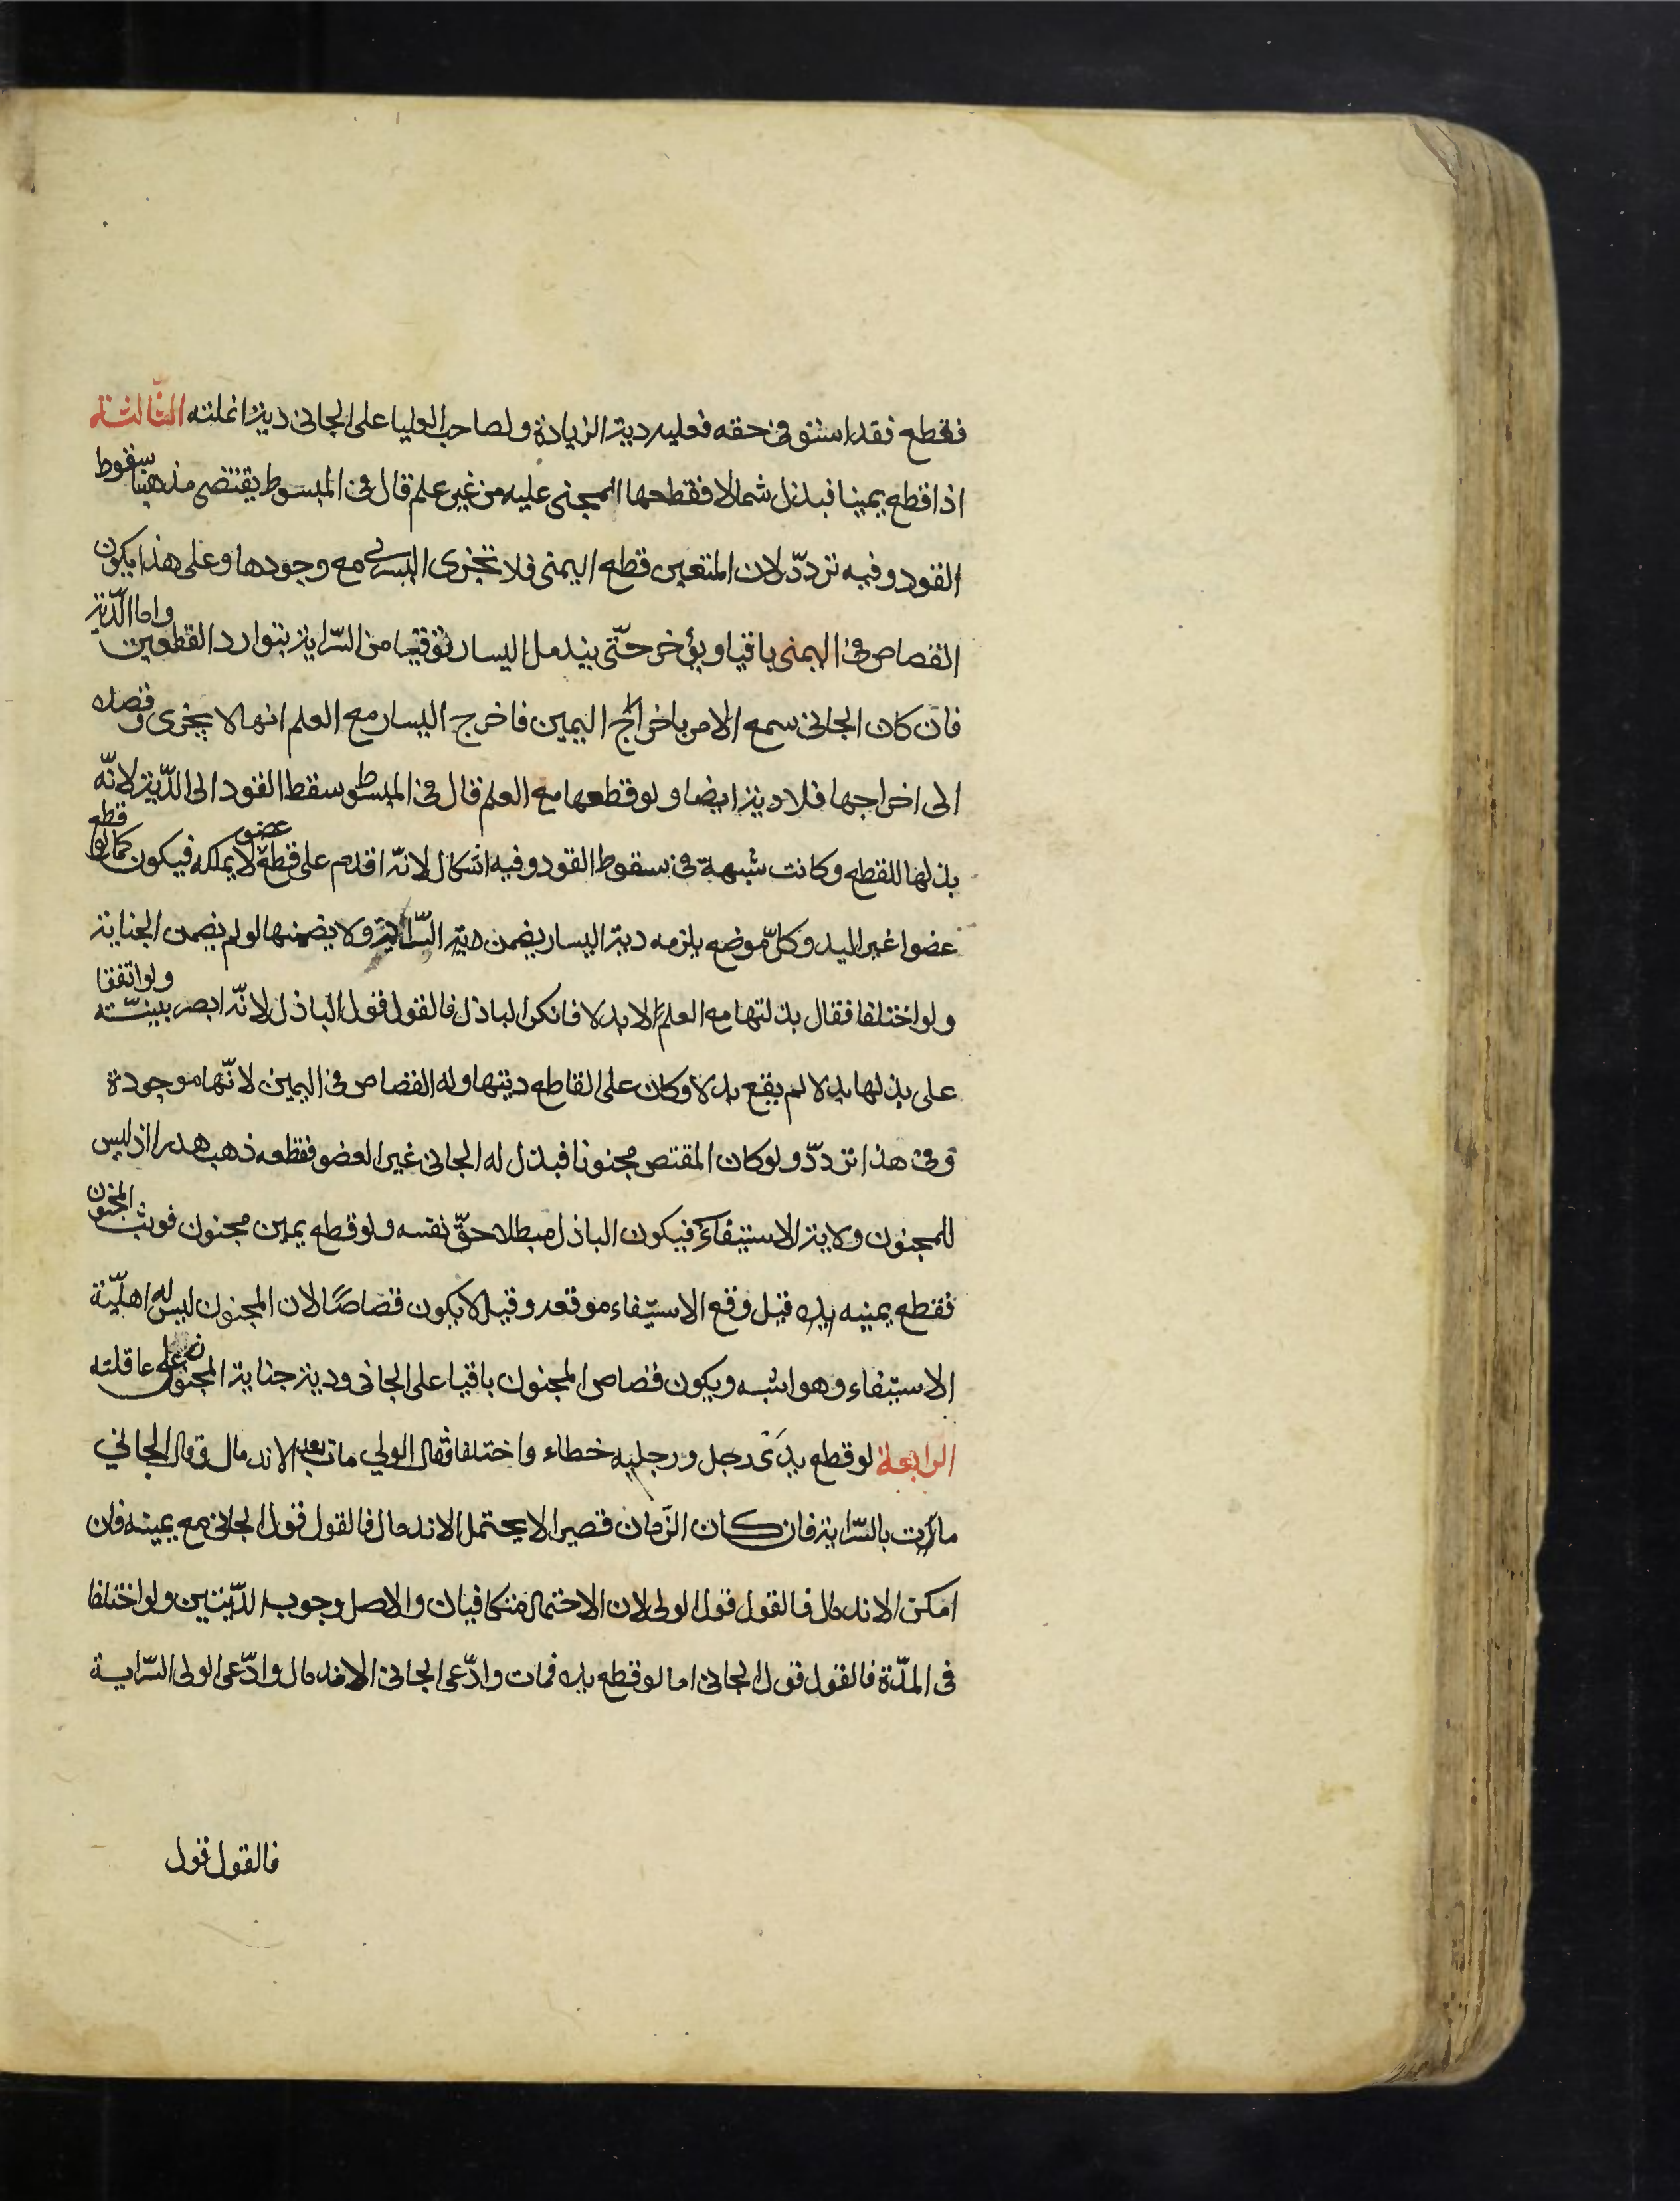 فقطع فقد استوفى حقه فعليه دية الزيادة ولصاحب العليا على الجانى دية انملته الثّالثة
اذا قطع يمينا فبذل شمالا فقطعها المجنى عليه من غير علم قال فى المبسوط يقتضى مذهبنا سقوط
القود وفيه تردّد لان المتعين قطع اليمنى فلا تجزى اليسرى مع وجودها وعلى هذا يكون
القصاص فى اليمنى باقيا ويؤخر حتّى يندمل اليسار توقيا من السّراية بتوارد القطعين واما الدّية
فان كان الجانى سمع الامر باخراج اليمين فاخرج اليسار مع العلم انها لا يجزى وقصده
الى اخراجها فلا دية ايضا ولو قطعها مع العلم قال فى المبسوط سقط القود الى الدّية لانّه
بذلها للقطع وكانت شبهة فى سقوط القود وفيه اشكال لانّه اقدم على قطع عضو لا يملكه فيكون كما لو قطع
عضوا غير اليد وكلّ موضع يلزمه دية اليسار يضمن دية السّراية ولا يضمنها لو لم يضمن الجناية
ولو اختلفا فقال بذلتها مع العلم الا بدلا فانكر الباذل فالقول قول الباذل لانّه ابصر بنيّته ولو اتفقا
على بذلها بدلا لم يقع بدلا وكان على القاطع ديتها وله القصاص فى اليمين لانّها موجودة
وفى هذا تردّد ولو كان المقتص مجنونا فبذل له الجانى غير العضو فقطعه ذهب هدرا اذ ليس
للمجنون ولاية الاستيفاء فيكون الباذل مبطلا حقّ نفسه ولو قطع يمين مجنون فوثب المجنون
فقطع يمينه قيل وقع الاستيفاء موقعه وقيل لا يكون قصاصًا لان المجنون ليس له اهليّة
الاستيفاء وهو اشبه ويكون قصاص المجنون باقيا على الجانى ودية جناية المجنون على عاقلته
الرابعة لو قطع يدى رجل ورجليه خطاء واختلفا فقال الولي مات بعد الاندمال وقال الجاني
مات بالسّراية فان كان الزّمان قصيرا لا يحتمل الاندمال فالقول قول الجانى مع يمينه فان
امكن الاندمال فالقول قول الولى لان الاحتمالين متكافيان والاصل وجوب الدّيتين ولو اختلفا
فى المدّة فالقول قول الجانى اما لو قطع يده فمات وادّعى الجانى الاندمال وادّعى الولى السّراية
فالقول قول